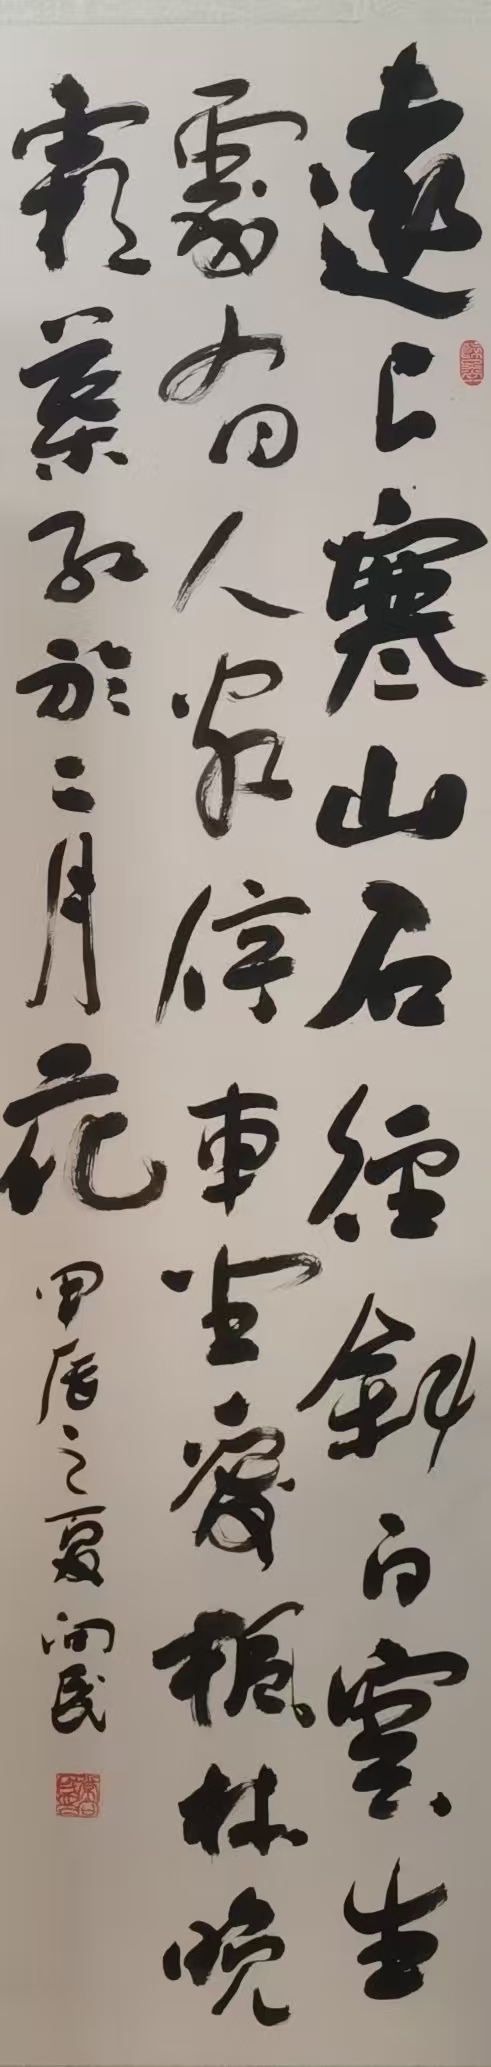 遠上寒山石徑斜白雲生
處有人家停車坐愛楓林晚
霜葉紅於二月花
甲辰之夏向民